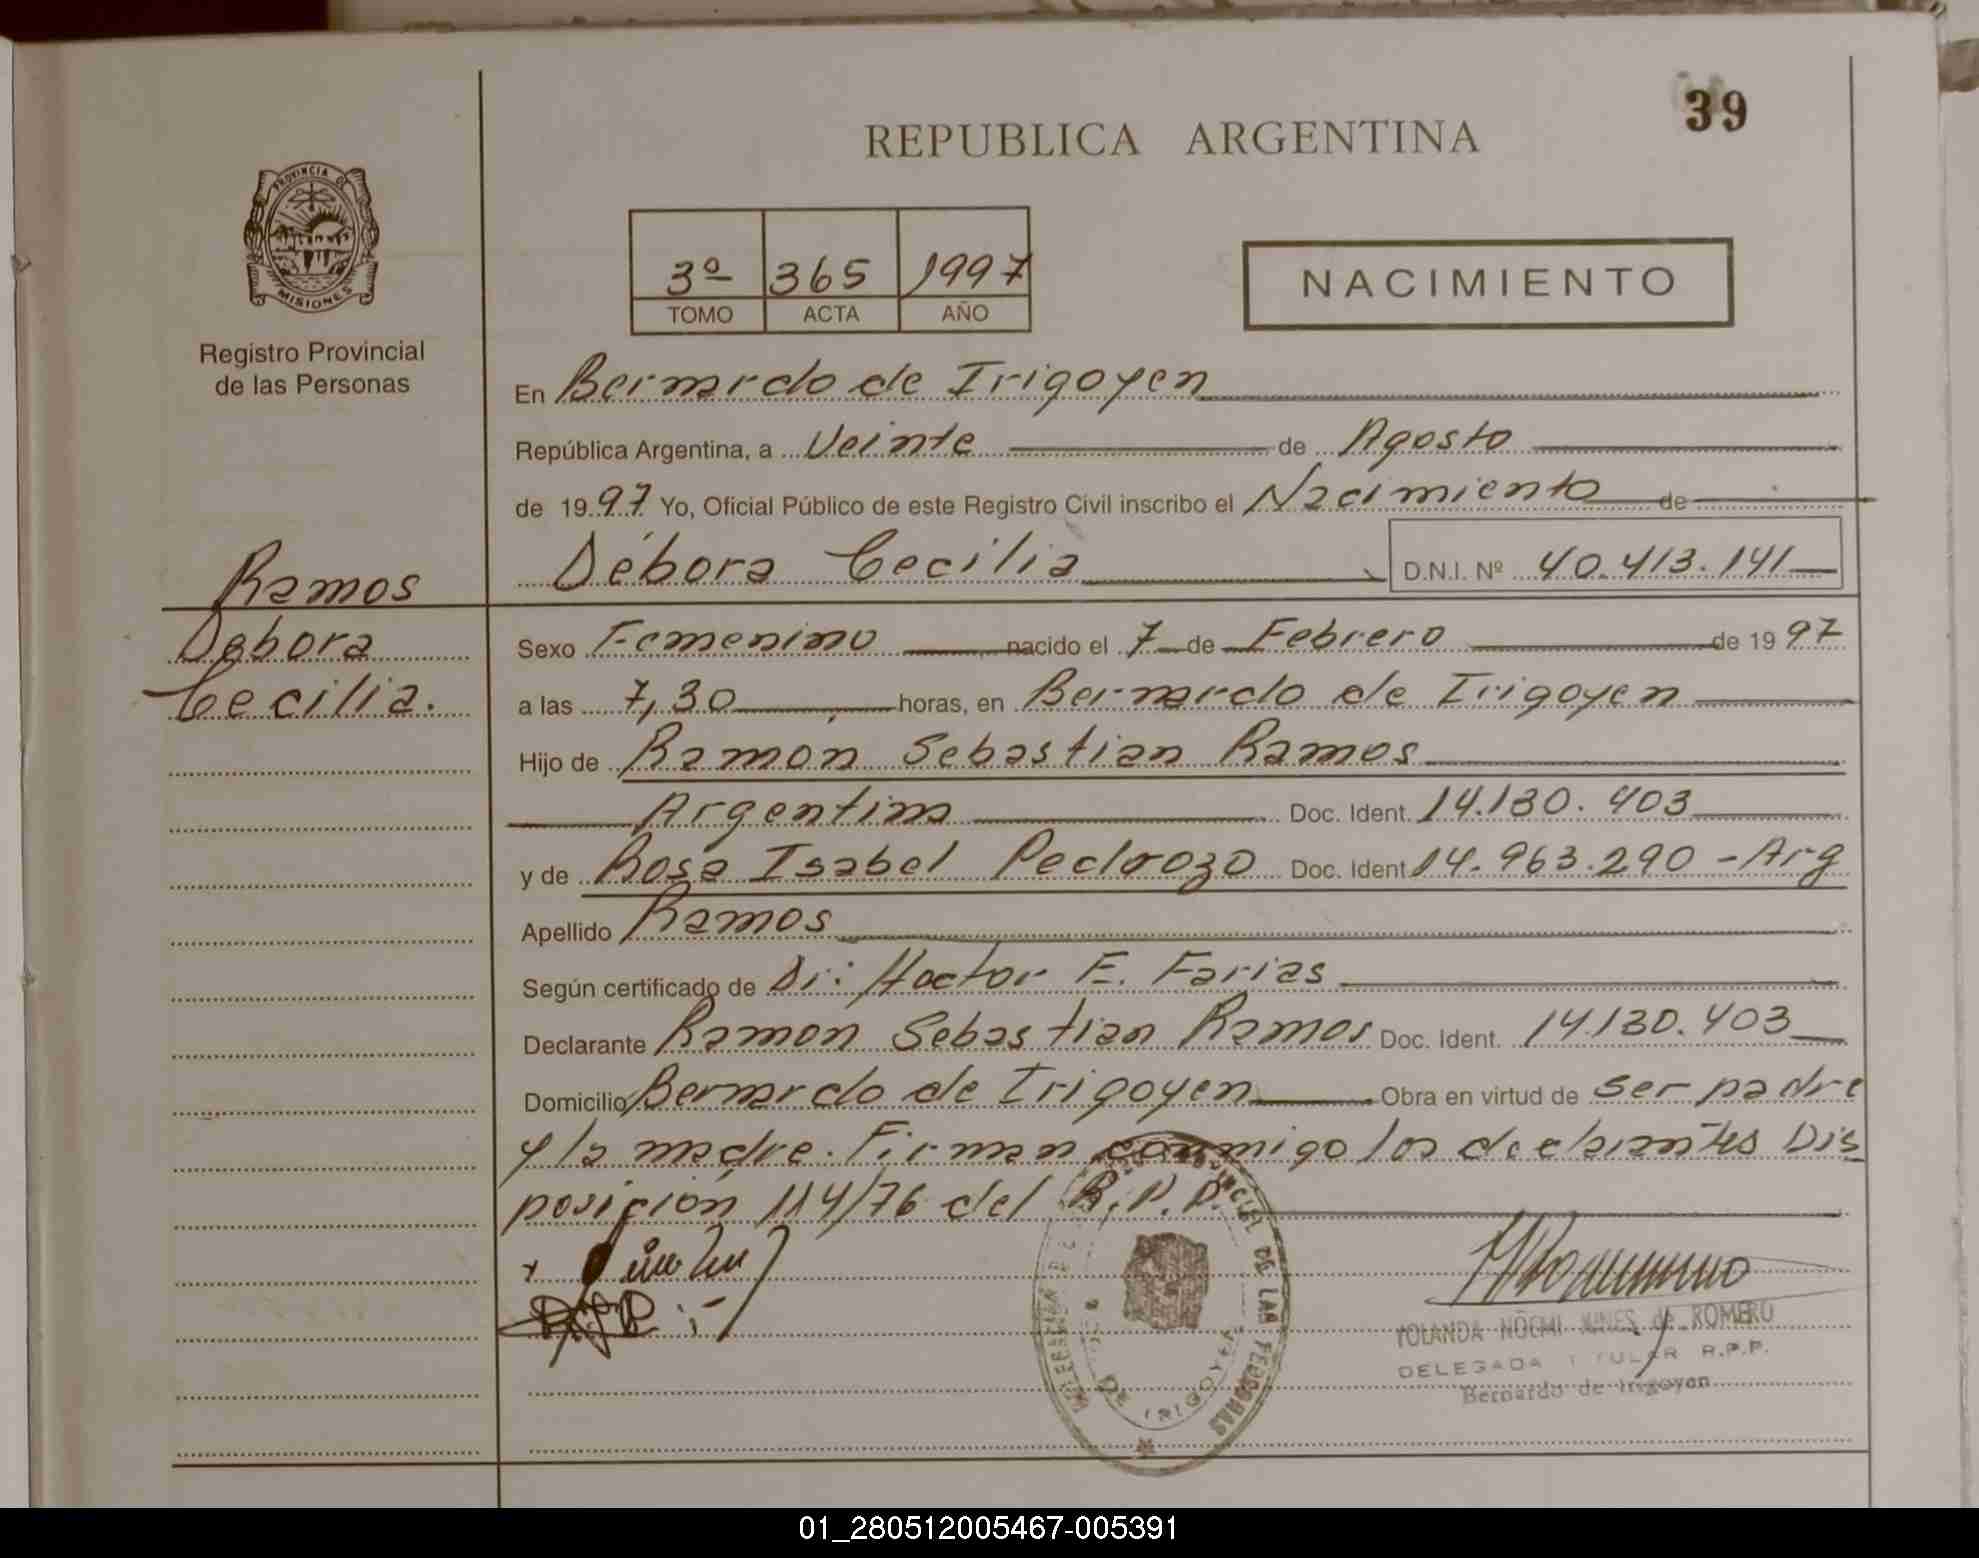 39
REPUBLICA ARGENTINA
PROVINCIA DE
MISIONES
Registro Provincial
de las Personas
3º 365 1997
TOMO ACTA AÑO
NACIMIENTO
En Bernardo de Irigoyen
República Argentina, a Veinte de Agosto
de 1997 Yo, Oficial Público de este Registro Civil inscribo el Nacimiento de
Débora Cecilia D.N.I. Nº 40.413.141
Ramos
Débora
Cecilia.
Sexo Femenino nacido el 7 de Febrero de 1997
a las 7,30 horas, en Bernardo de Irigoyen
Hijo de Ramón Sebastian Ramos
Argentino Doc. Ident. 14.130.403
y de Rosa Isabel Pedrozo Doc. Ident. 14.963.290 - Arg
Apellido Ramos
Según certificado de Dr: Hector E. Farias
Declarante Ramon Sebastian Ramos Doc. Ident. 14.130.403
Domicilio Bernardo de Irigoyen Obra en virtud de ser padre
y la madre. Firman conmigo los declarantes Dis
posición 114/76 del R.P.P.
PROVINCIAL DE LAS PERSONAS
DE IRIGOYEN
YOLANDA NOEMI de ROMERO
DELEGADA TITULAR R.P.P.
Bernardo de Irigoyen
01_280512005467-005391